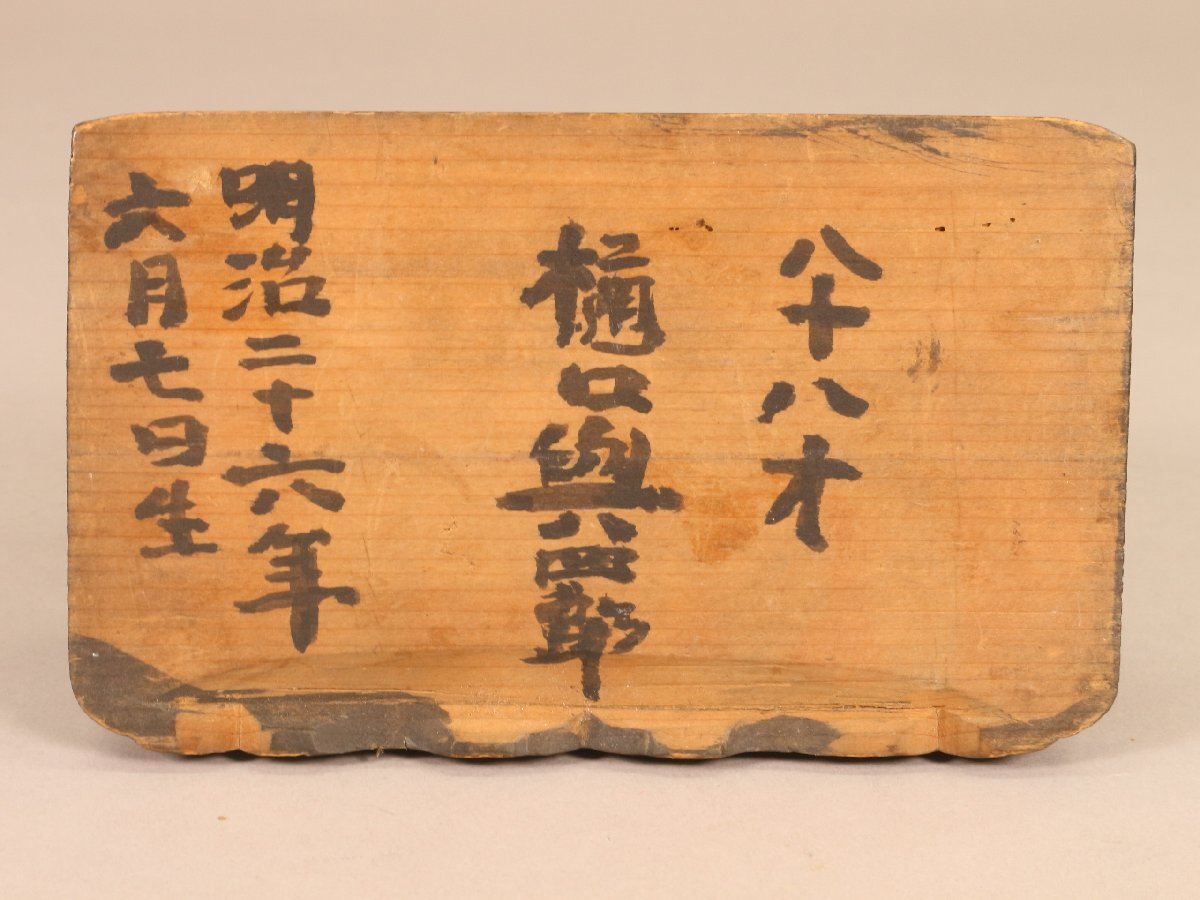 八十八才
樋口與八四郎
明治二十六年
六月七日生